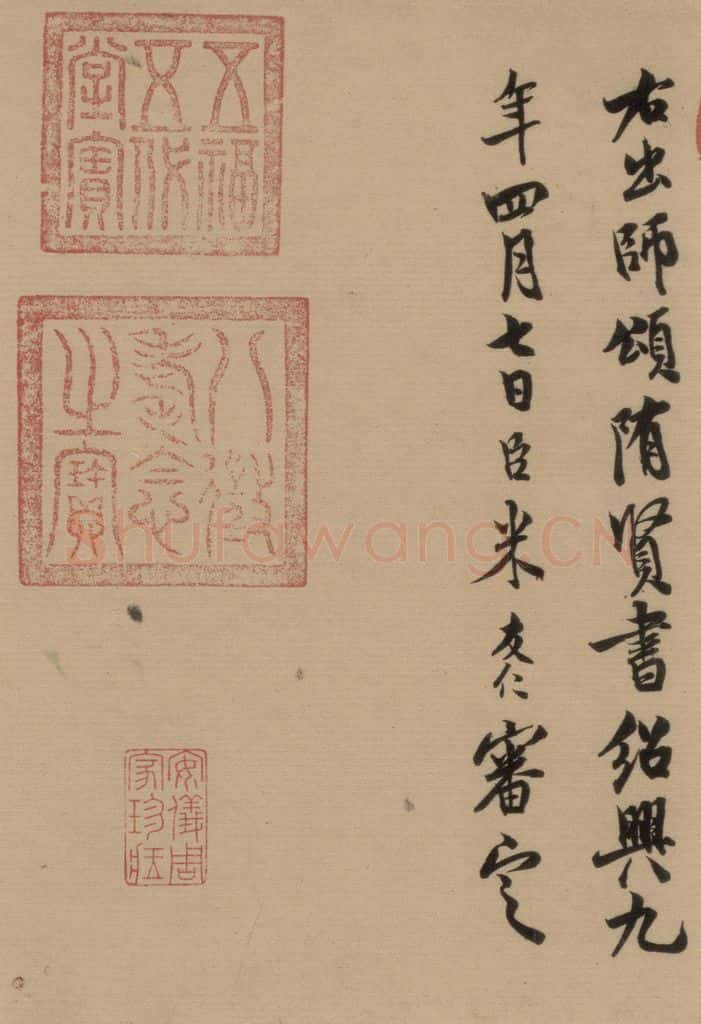 右出師頌隋賢書紹興九
年四月七日臣米友仁審定
五福
五代
堂寶
八徵
耄念
之寶
安儀周
家珍藏
Shufawang.CN